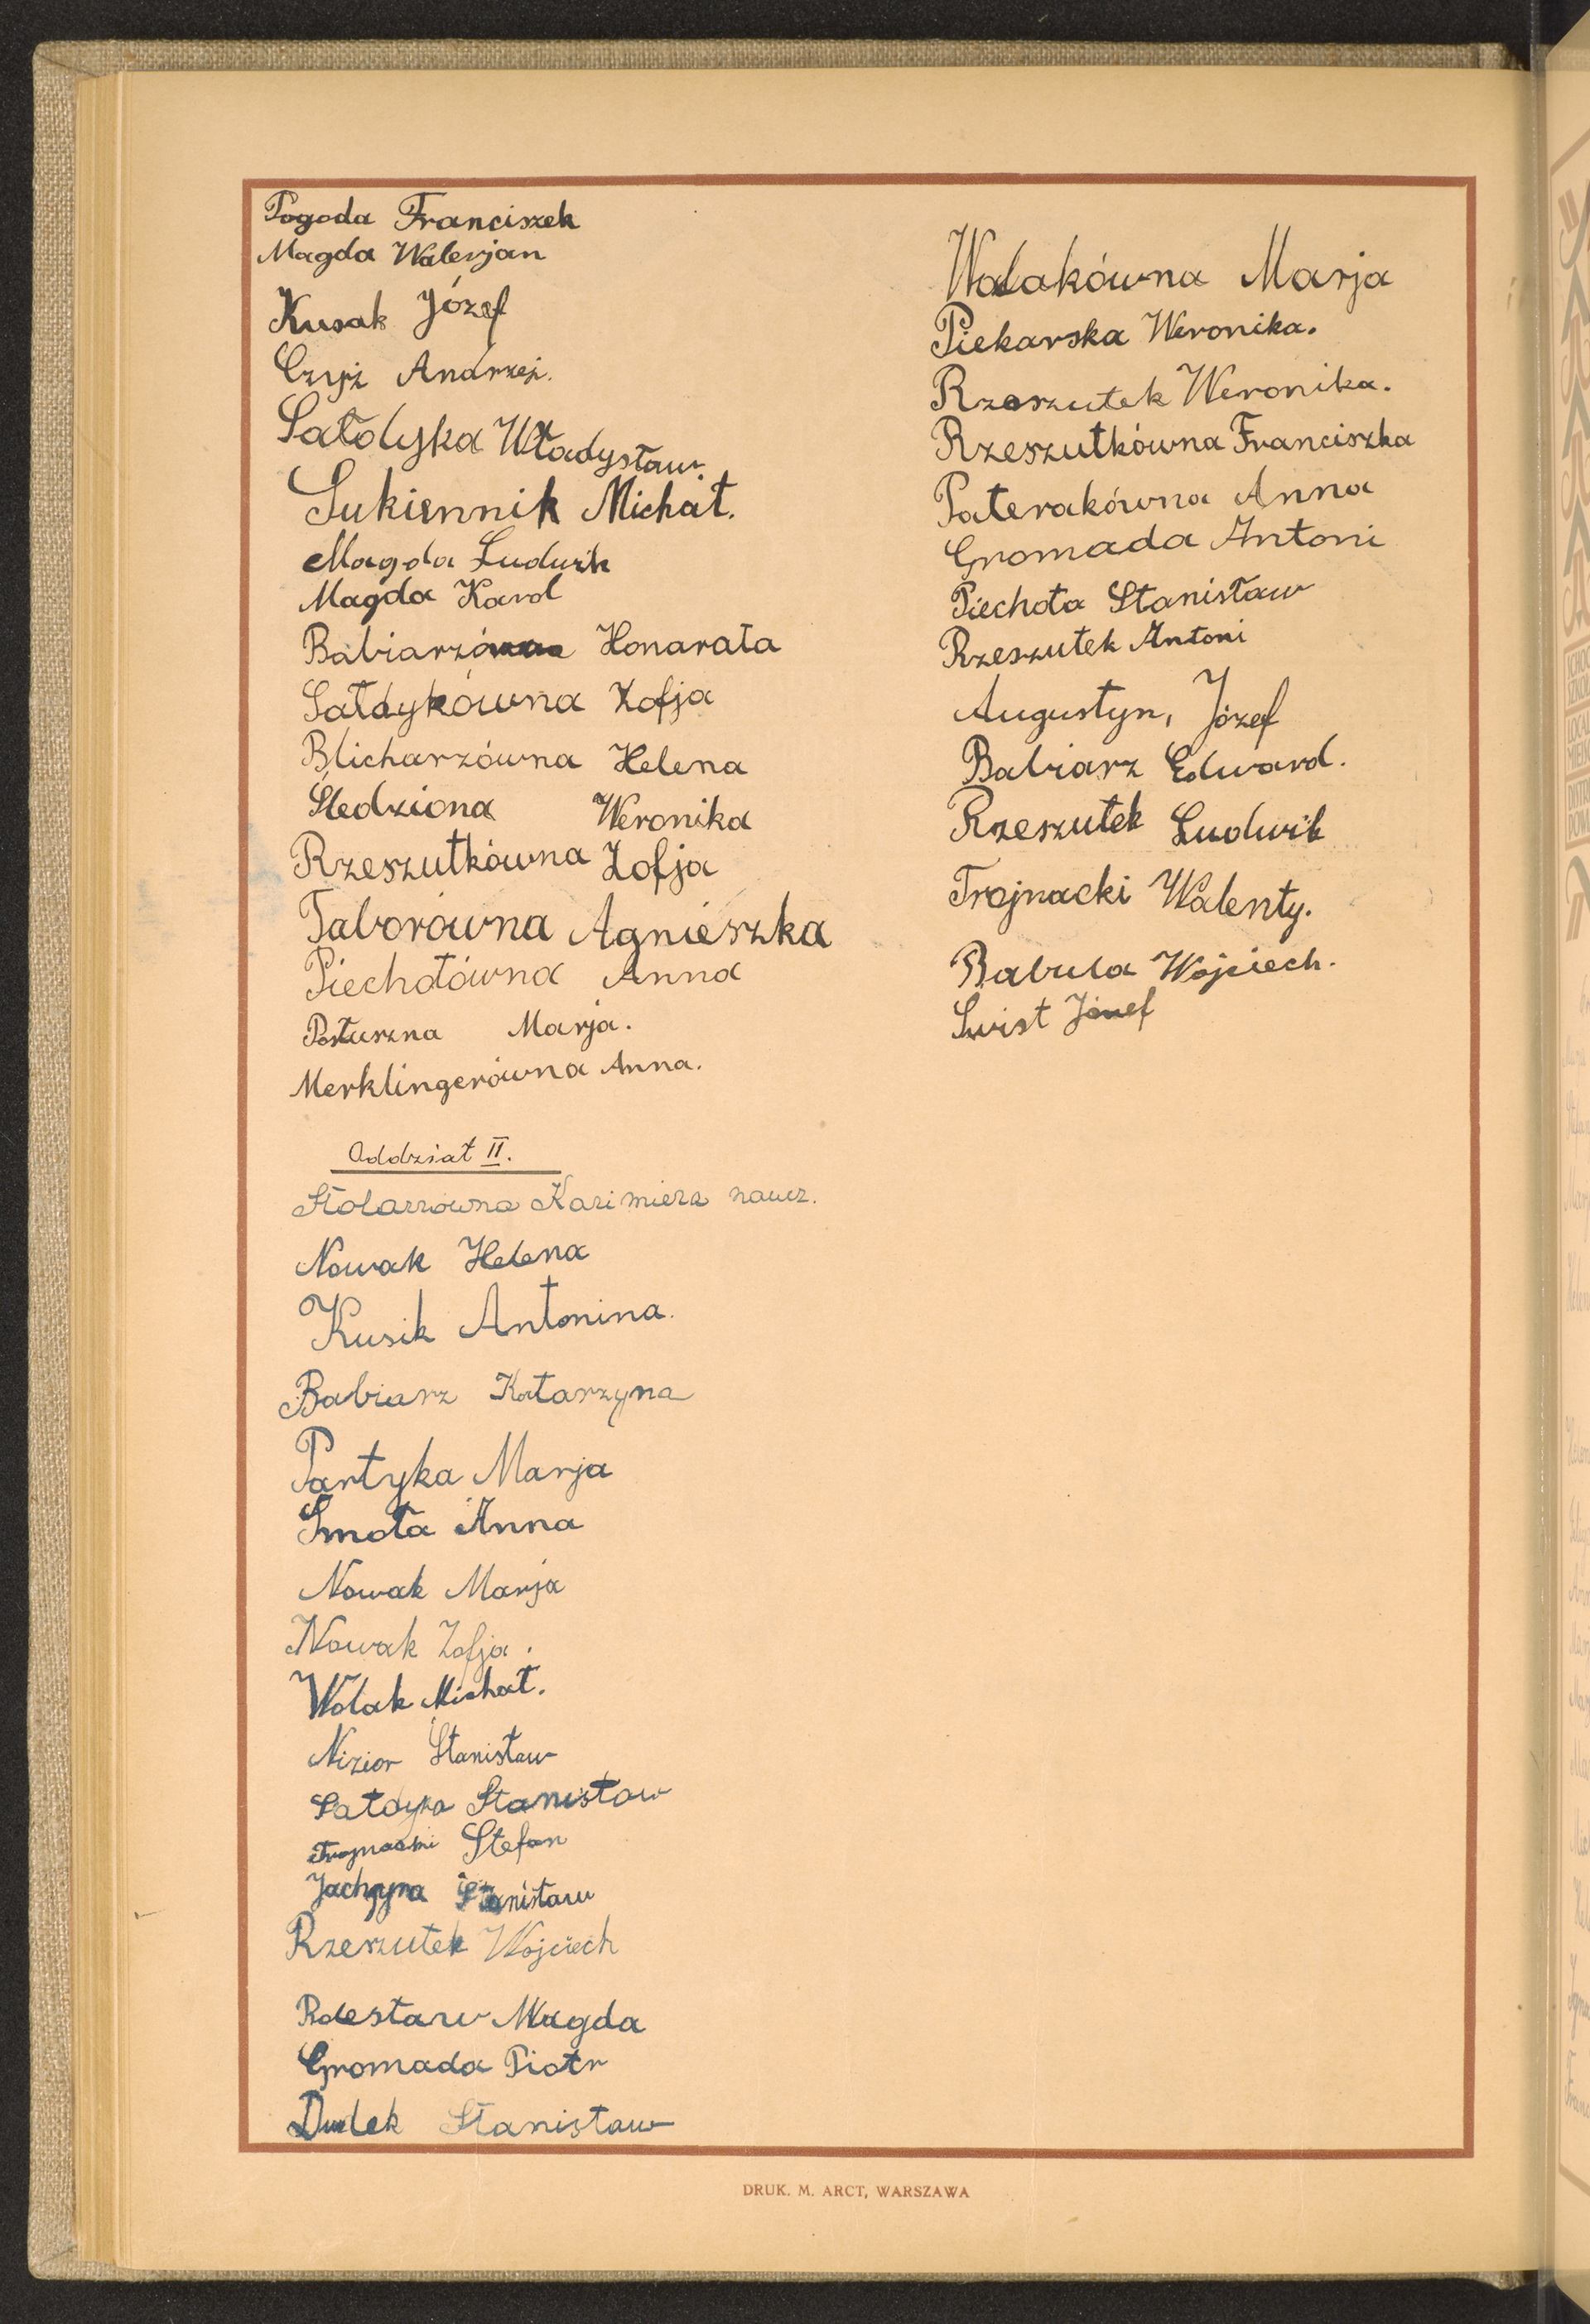 Pogoda Franciszek
Magda Walerjan
Kusak Józef
Czyż Andrzej.
Sałdyka Władysław.
Sukiennik Michał.
Magda Ludwik
Magda Karol
Babiarzówna Honarata
Sałdykówna Zofja
Blicharzówna Helena
Śledziona Weronika
Rzeszutkówna Zofja
Taborówna Agnieszka
Piechotówna Anna
Postuszna Marja.
Merklingerówna Anna.
Oddział II.
Stolarzówna Kazimiera naucz.
Nowak Helena
Kusik Antonina.
Babiarz Katarzyna
Partyka Marja
Smoła Anna
Nowak Marja
Nowak Zofja.
Wolak Michał.
Nizior Stanisław
Sałdyka Stanisław
Trojnacki Stefan
Jachyra Stanisław
Rzeszutek Wojciech
Magda
Gromada Piotr
Dudek Stanisław
Walakówna Marja
Piekarska Weronika.
Rzeszutek Weronika.
Rzeszutkówna Franciszka
Paterakówna Anna
Gromada Antoni
Piechota Stanisław
Rzeszutek Antoni
Augustyn, Józef
Babiarz Edward.
Rzeszutek Ludwik
Trojnacki Walenty.
Babula Wojciech.
Świst Józef
DRUK. M. ARCT, WARSZAWA